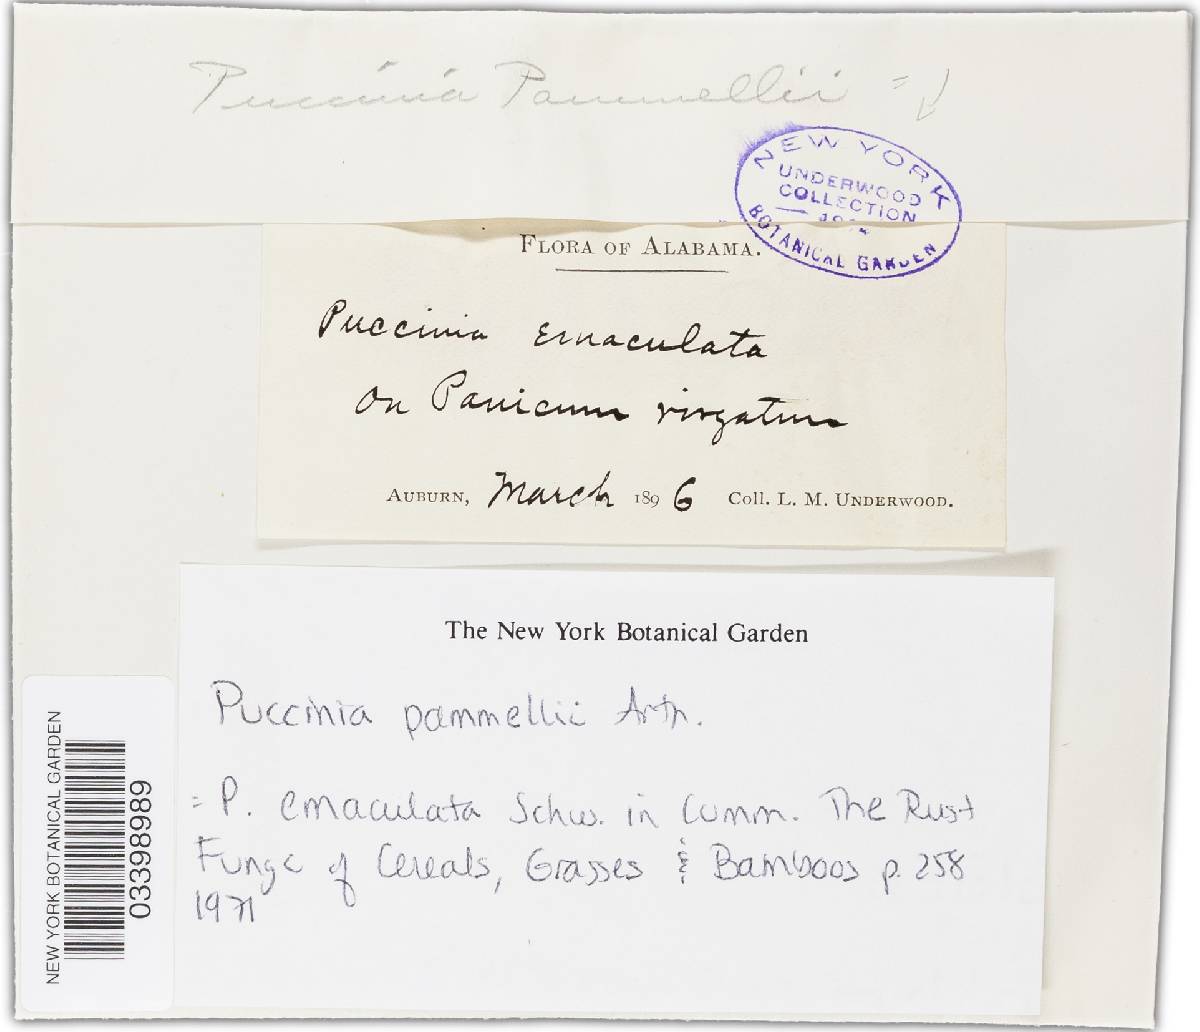 Puccinia Pammellii =
NEW YORK
UNDERWOOD
COLLECTION
BOTANICAL GARDEN
FLORA OF ALABAMA.
Puccinia Emaculata
on Panicum virgatum
AUBURN, March 1896 Coll. L. M. UNDERWOOD.
The New York Botanical Garden
Puccinia pammellii Arth.
= P. emaculata Schw. in Cumm. The Rust
Fungi of Cereals, Grasses & Bamboos p. 258
1971
NEW YORK BOTANICAL GARDEN
03398989